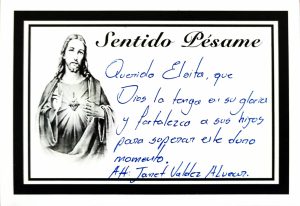 Sentido Pésame
Querido Eloita, que
Dios lo tenga en su gloria
y fortalezca a sus hijos
para soperar este duro
momento.
Att: Janet Valdez Alvear.